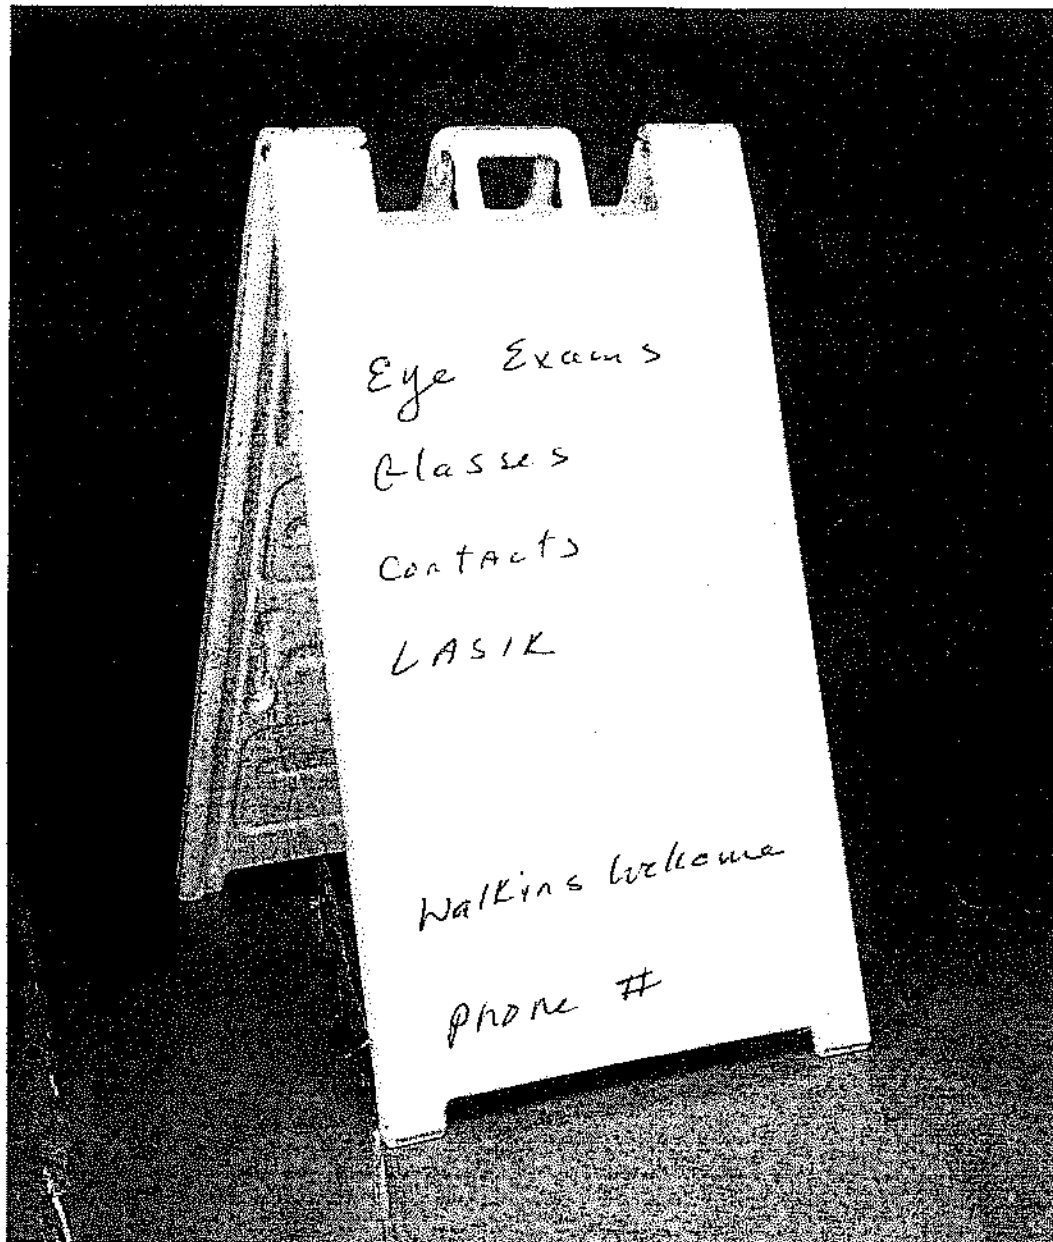 Eye Exams
Glasses
Contacts
LASIK
Walkins Welcome
Phone #